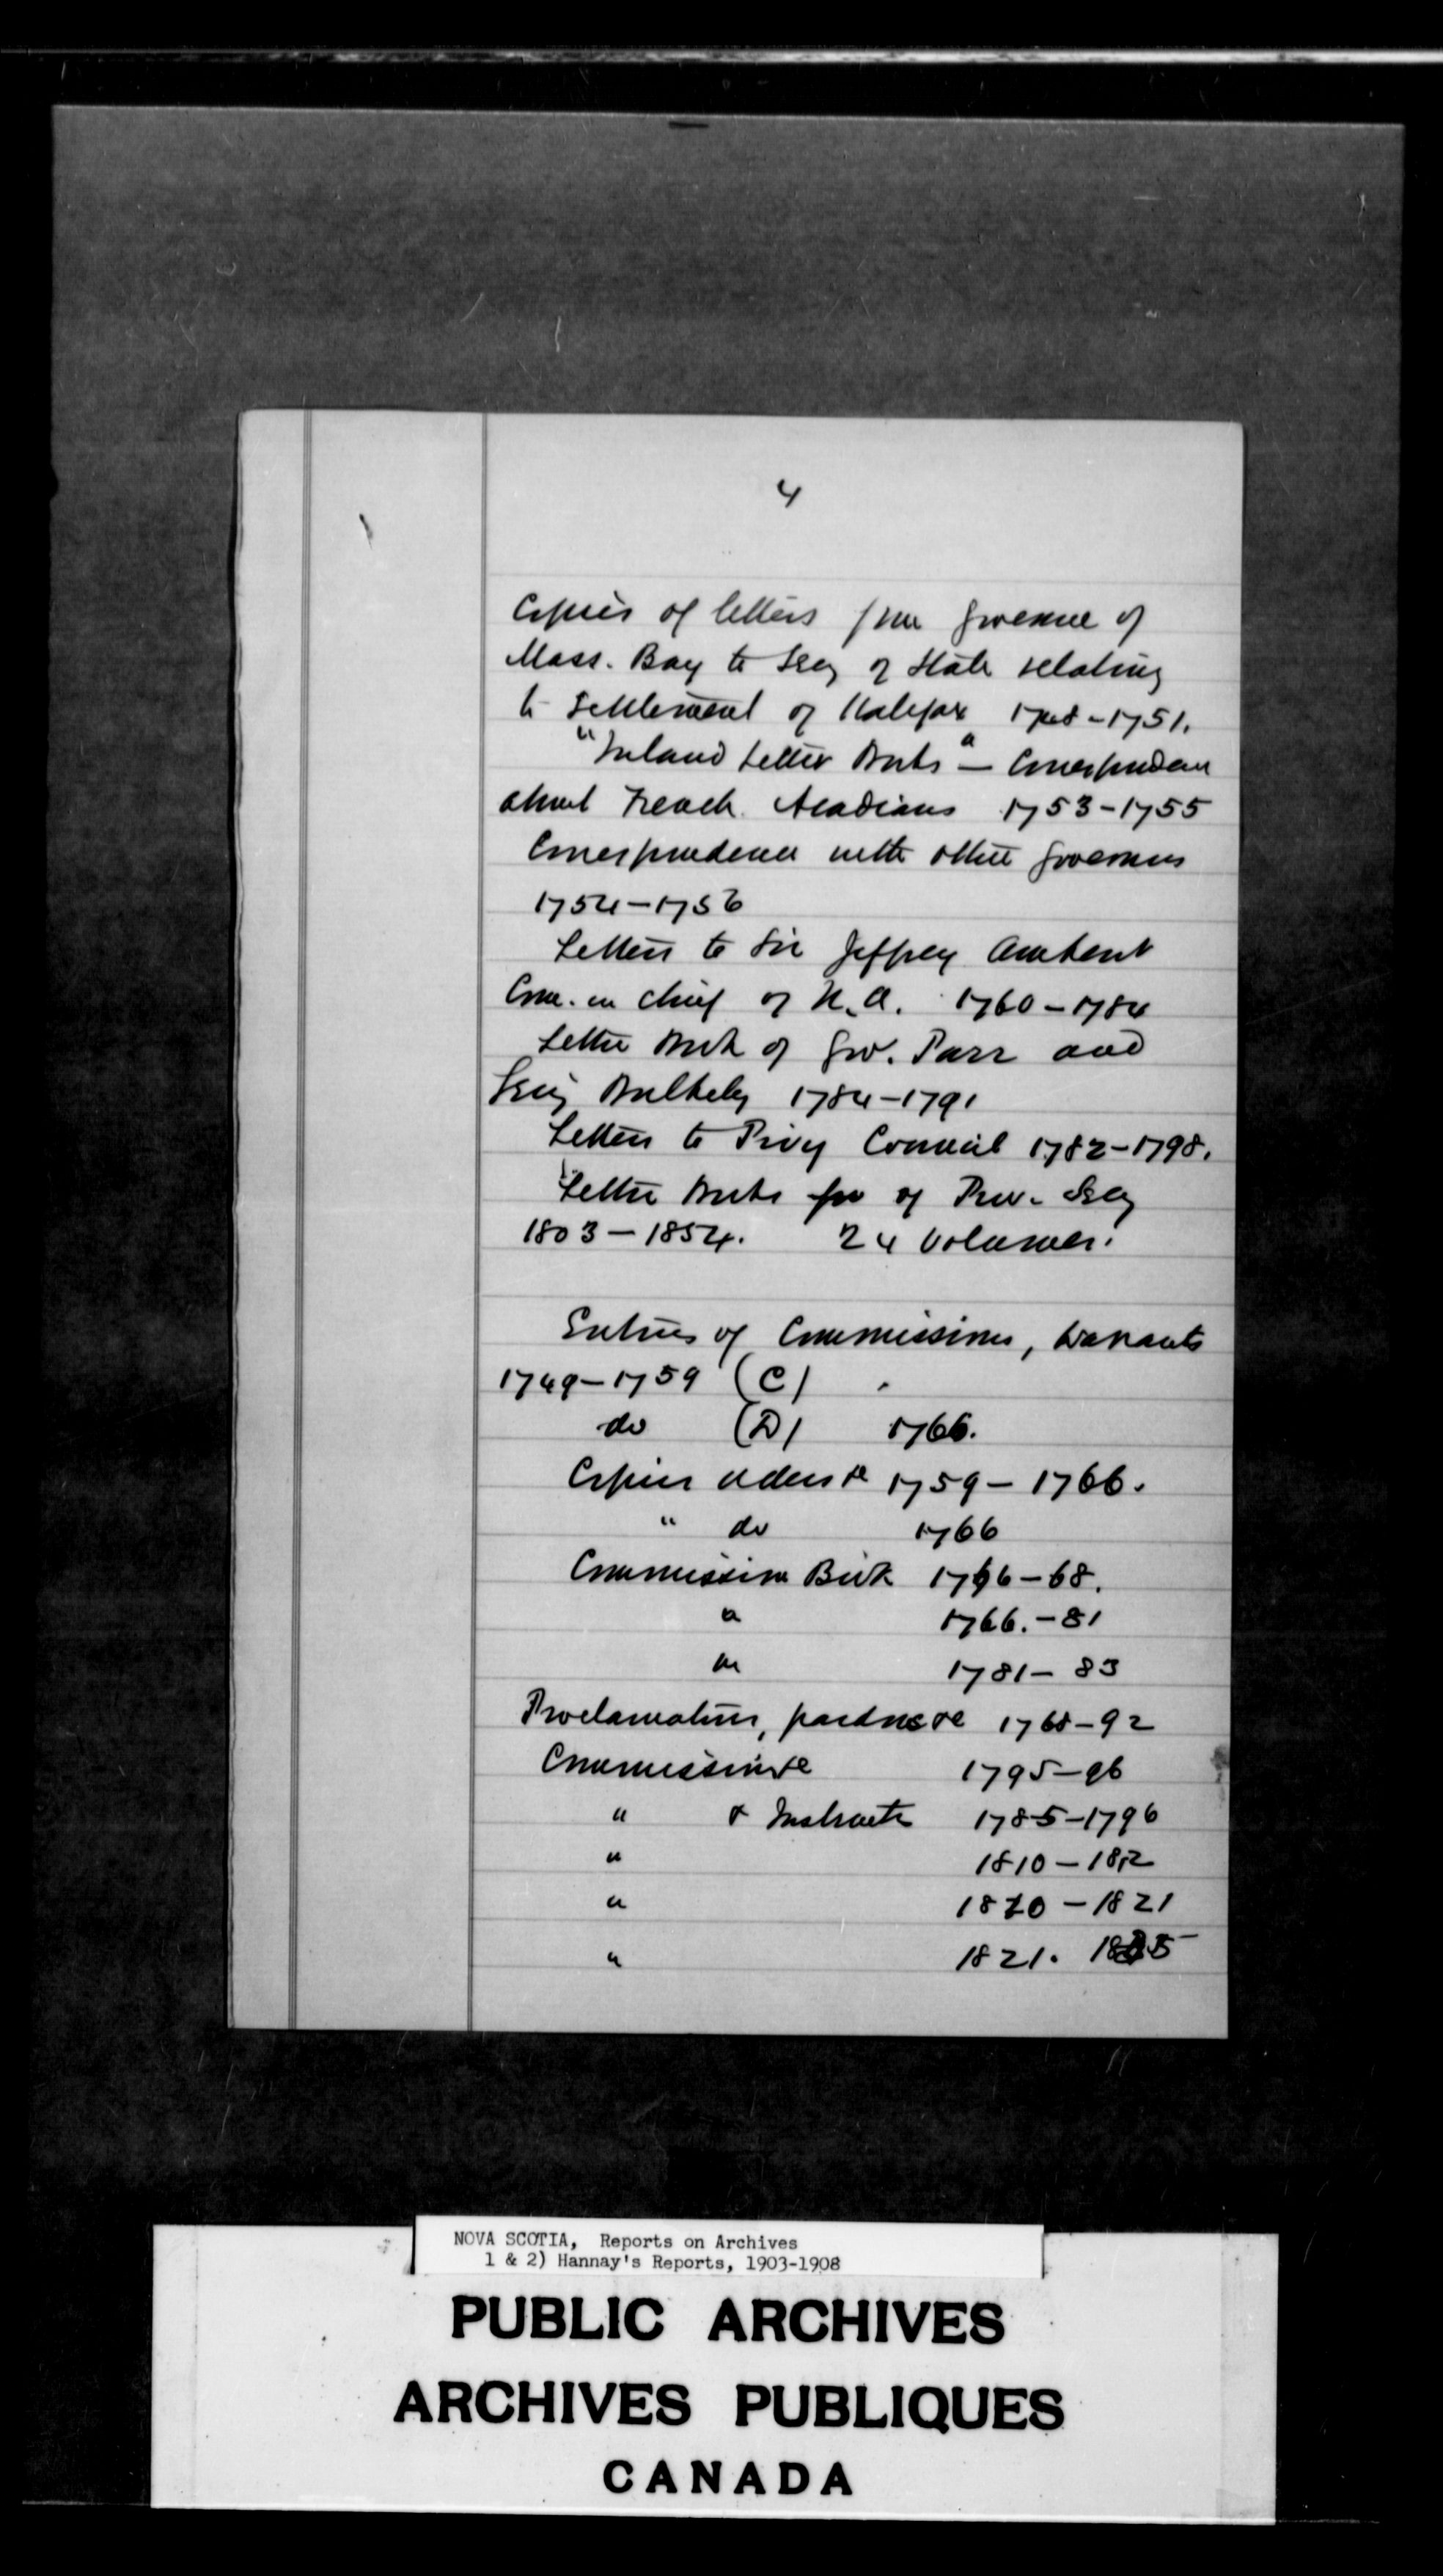 4
Copies of letters from Governor of
Mass. Bay to Secy of State relating
to Settlement of Halifax 1748-1751.
"Inland Letter Books" - Correspondence
about French Acadians 1753-1755
Correspondence with other Governors
1754-1756
Letters to Sir Jeffrey Amherst
Com. in Chief of N.A. 1760-1784
Letter Book of Gov. Parr and
Secy Bulkeley 1784-1791
Letters to Privy Council 1782-1798.
Letter Books of Prov. Secy
1803-1854. 24 Volumes.
Entries of Commissions, Warrants
1749-1759 (C)
do (D) 1766.
Copies orders &c 1759-1766.
" do 1766
Commission Book 1766-68.
" 1766.-81
" 1781-83
Proclamations, pardons &c 1768-92
Commissions &c 1795-96
" & Instructs 1785-1796
" 1810-1812
" 1820-1821
" 1821.
NOVA SCOTIA, Reports on Archives
1 & 2) Hannay's Reports, 1903-1908
PUBLIC ARCHIVES
ARCHIVES PUBLIQUES
CANADA